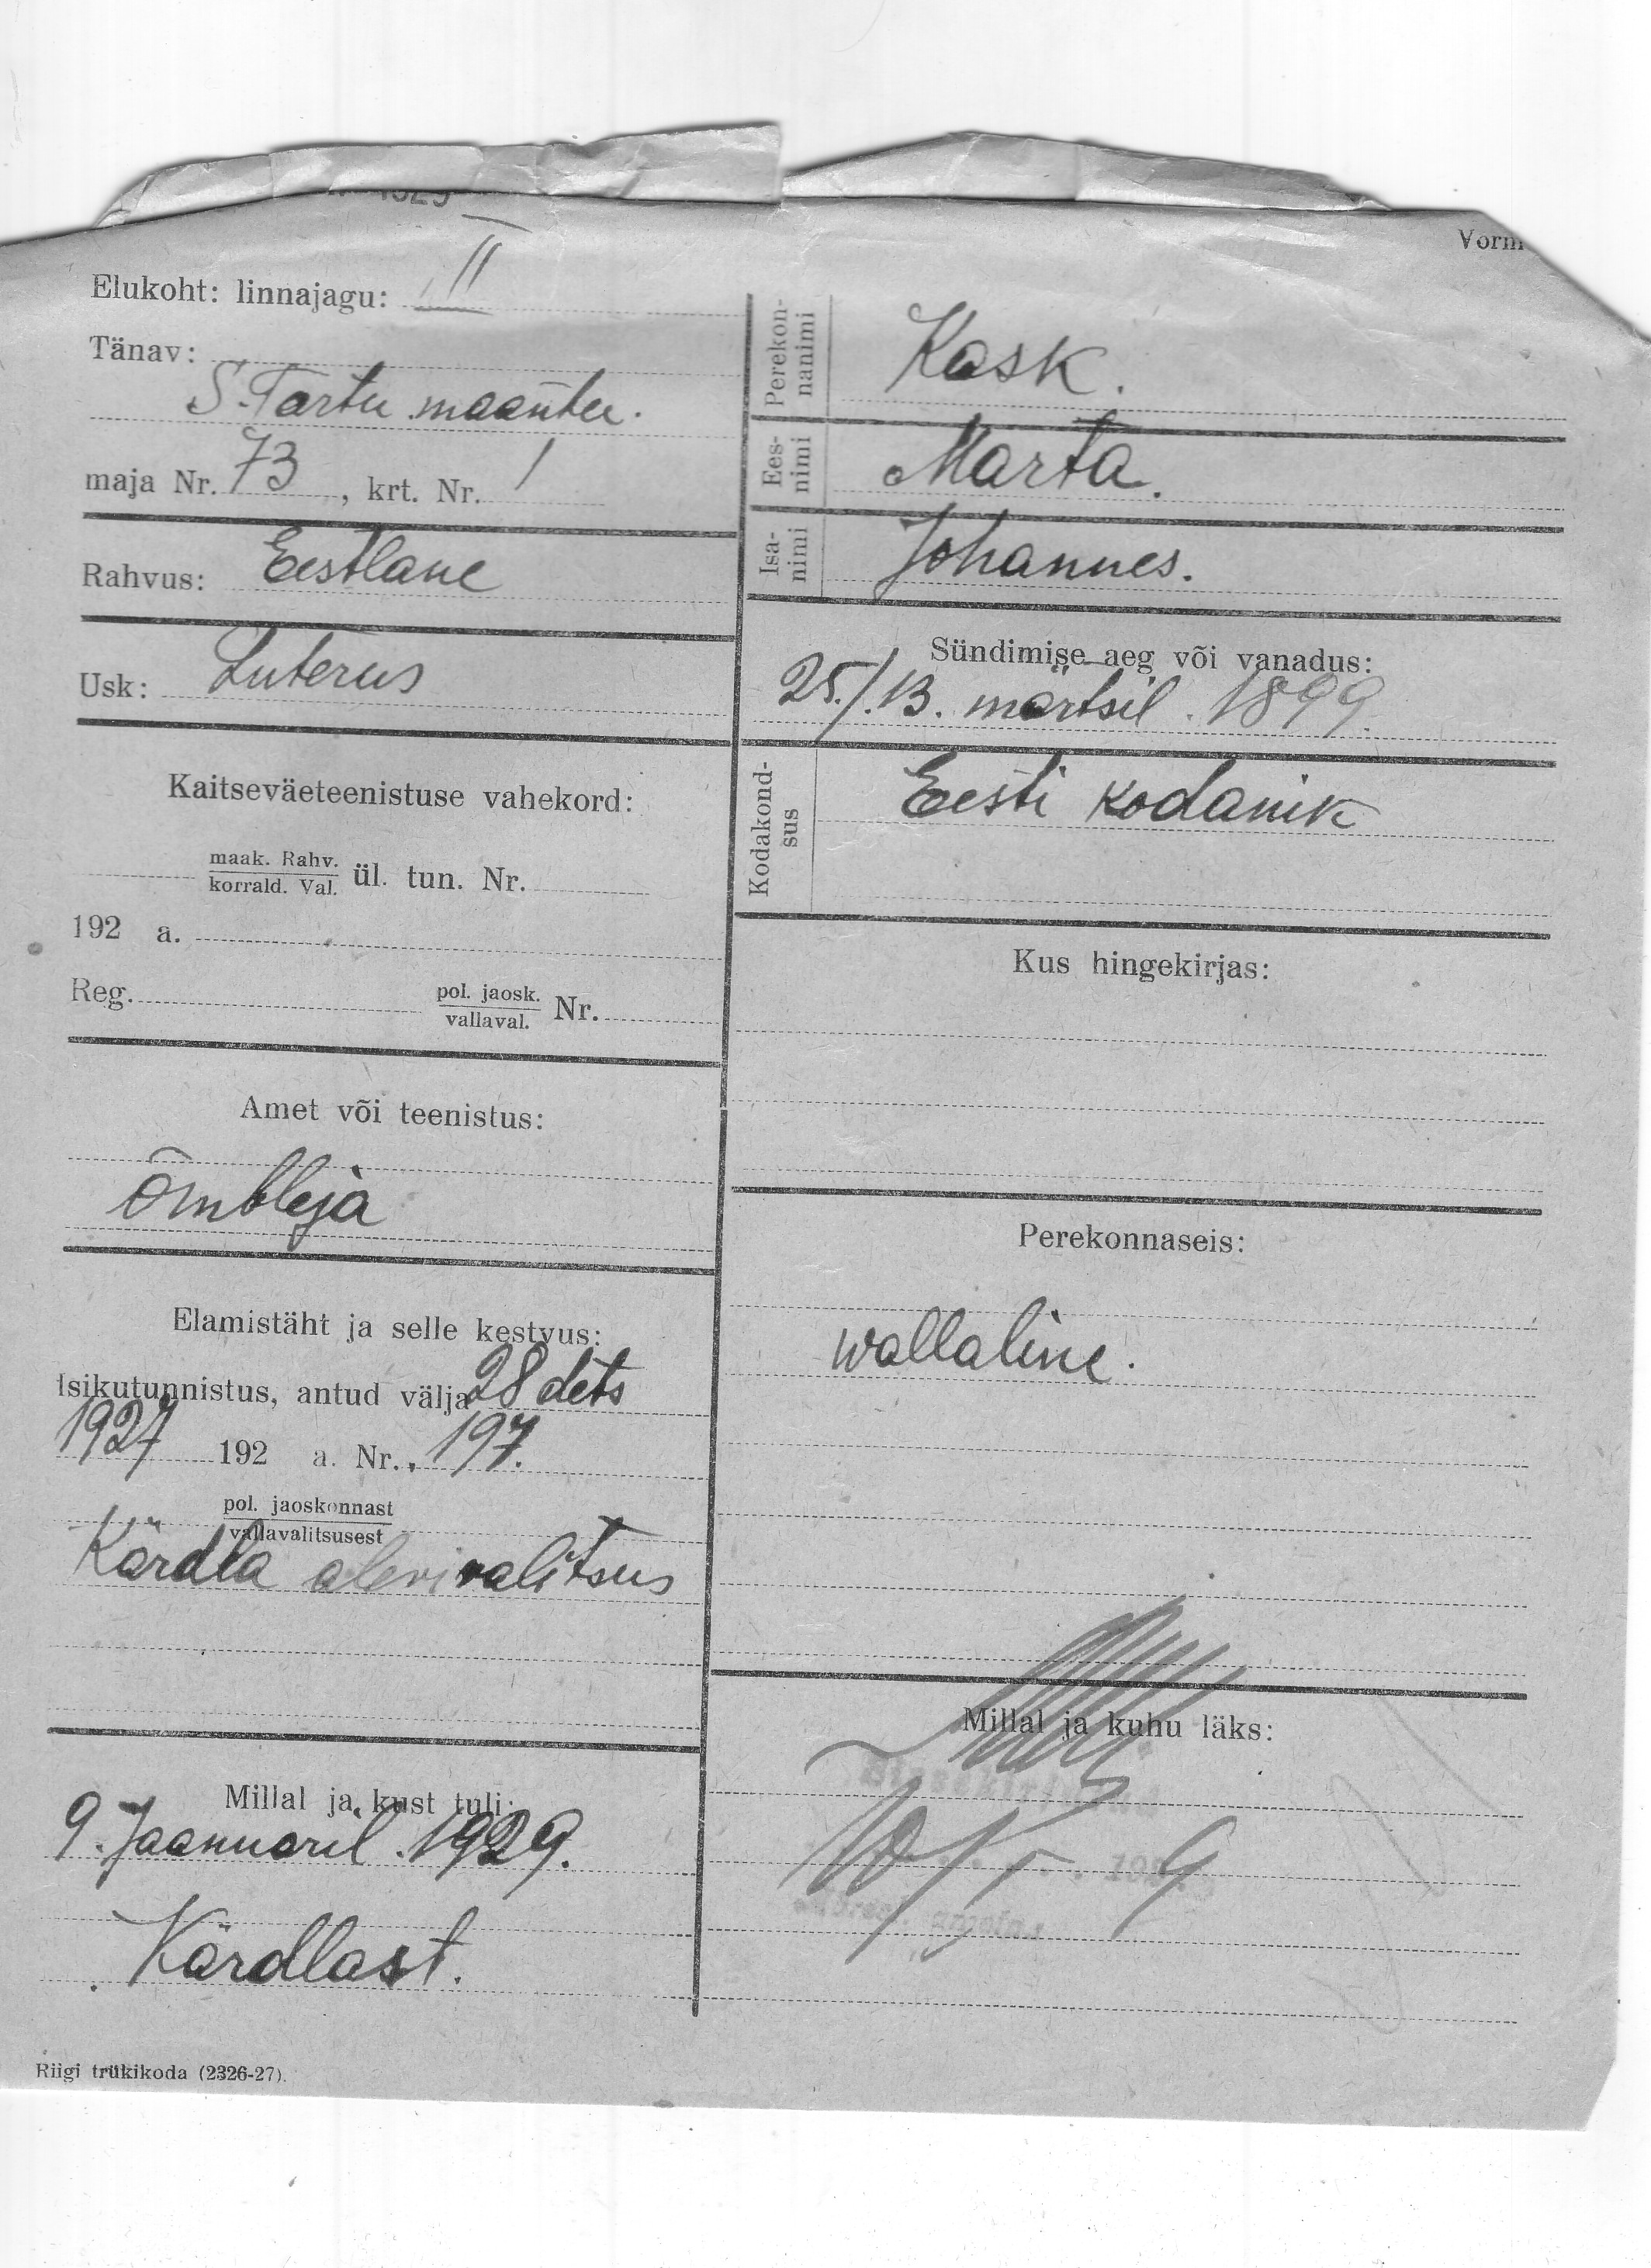 Vorm
Elukoht: linnajagu: II
Tänav:
S. Tartu maantee.
maja Nr. 73, krt. Nr. 1
Rahvus: Eestlane
Usk: Luterus
Kaitseväeteenistuse vahekord:
maak. Rahv.
korrald. Val. ül. tun. Nr.
192 a.
Reg. pol. jaosk.
vallaval. Nr.
Amet või teenistus:
Õmbleja
Elamistäht ja selle kestvus:
Isikutunnistus, antud välja 28 dets
1927 192 a. Nr. 197.
pol. jaoskonnast
vallavalitsusest
Kärdla alevivalitsus
Millal ja kust tuli:
9. Jaanuaril. 1929.
Kärdlast.
Riigi trükikoda (2326-27).
Perekon-
nanimi Kask.
Ees-
nimi Marta.
Isa-
nimi Johannes.
Sündimise aeg või vanadus:
25./13. märtsil. 1899.
Kodakond-
sus Eesti kodanik
Kus hingekirjas:
Perekonnaseis:
wallaline.
Millal ja kuhu läks: